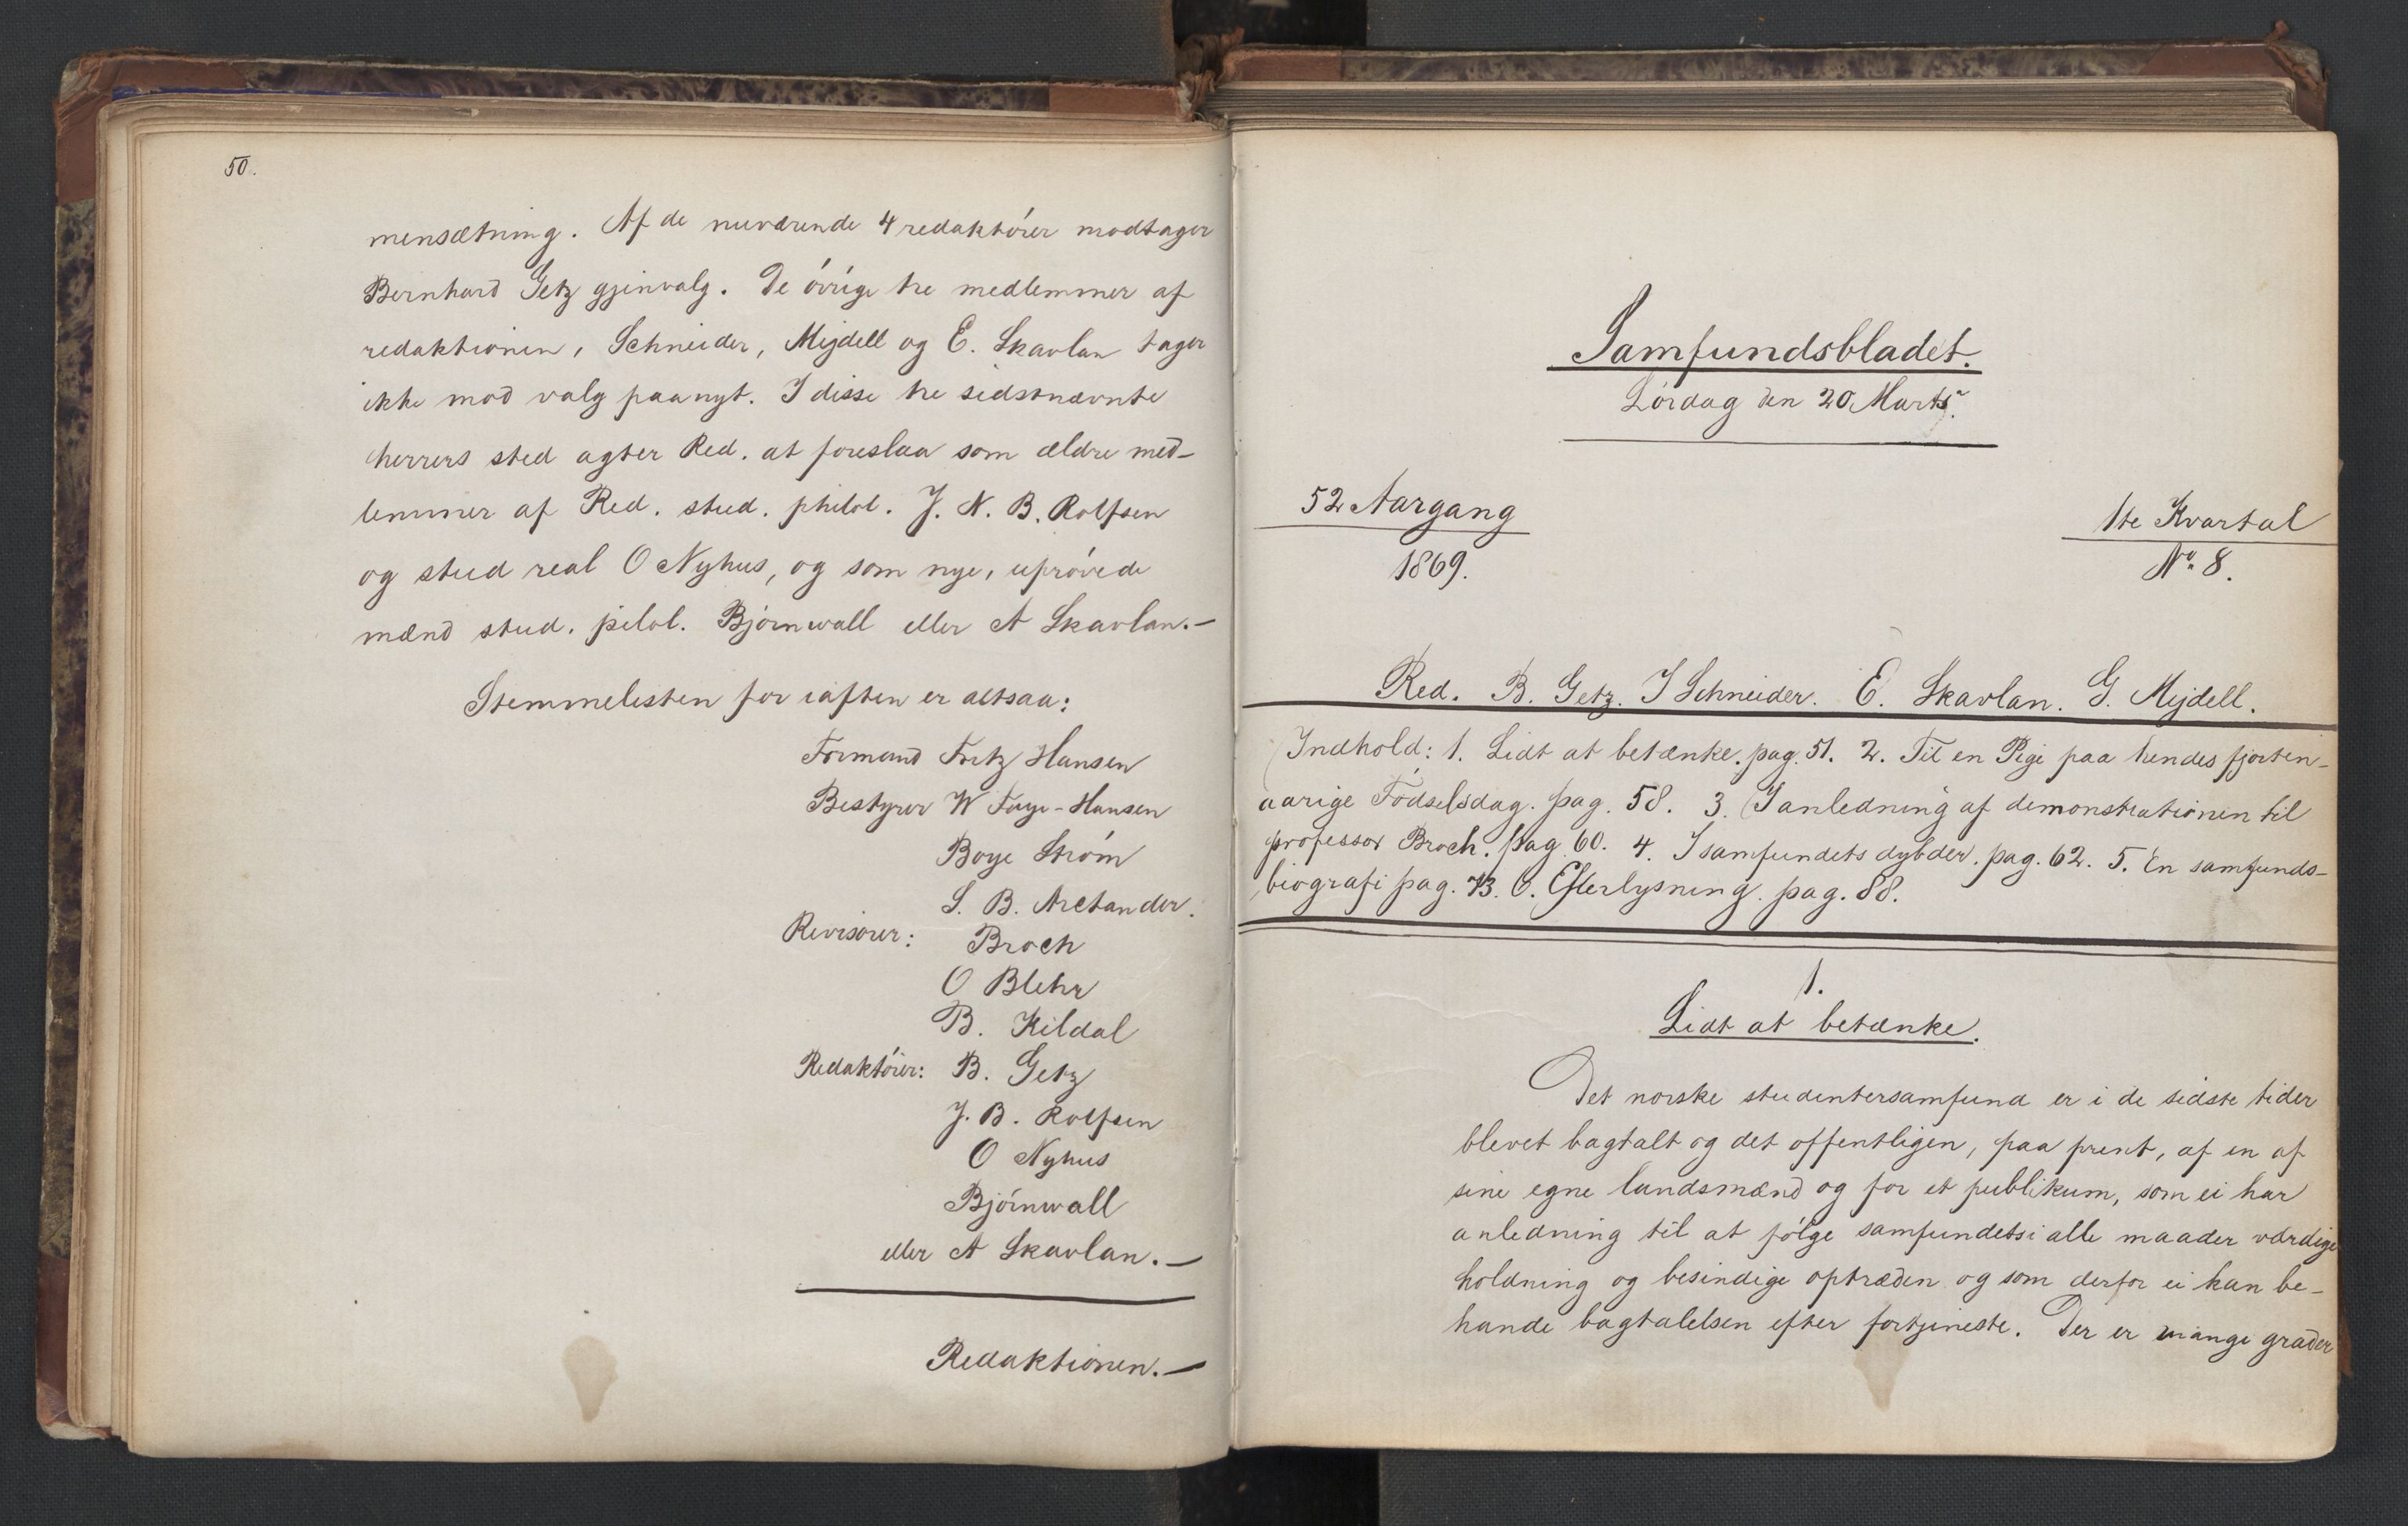 50.
mensætning. Af de nuværende 4 redaktører modtager
Bernhard Getz gjenvalg. De øvrige tre medlemmer af
redaktionen, Schneider, Mejdell og E. Skavlan tager
ikke mod valg paanyt. I disse tre sidstnævnte
herrers sted agter Red. at foreslaa som ældre med-
lemmer af Red. stud. philol. J. N. B. Rolfsen
og stud real O Nyhus, og som nye, uprøvede
mænd stud. pilol. Bjørnwall eller A Skavlan.—
Stemmelisten for iaften er altsaa:
Formand Fritz Hansen
Bestyrer W Faye-Hansen
Boye Strøm
S. B. Arctander.
Revisorer: Broch
O Blehr
B. Kildal
Redaktører: B. Getz
J. B. Rolfsen
O Nyhus
Bjørnwall
eller A Skavlan.—
Redaktionen.—
Samfundsbladet.
Lørdag den 20 Marts.
52 Aargang
1869.
1te Kvartal
No. 8.
Red. B. Getz. J Schneider. E. Skavlan. G. Mejdell.
Indhold: 1. Lidt at betænke. pag. 51. 2. Til en Pige paa hendes fjorten-
aarige Fødselsdag. pag. 58. 3. I anledning af demonstrationen til
professor Broch. pag 60. 4. I samfundets dybder. pag. 62. 5. En samfunds-
biografi pag. 73. 6. Efterlysning. pag. 88.
1.
Lidt at betænke.
Det norske studentersamfund er i de sidste tider
blevet bagtalt og det offentligen, paa prent, af en af
sine egne landsmænd og for et publikum, som ei har
anledning til at følge samfundets i alle maader værdige
holdning og besindige optræden og som derfor ei kan be-
hande bagtalelsen efter fortjeneste. Der er mange grader